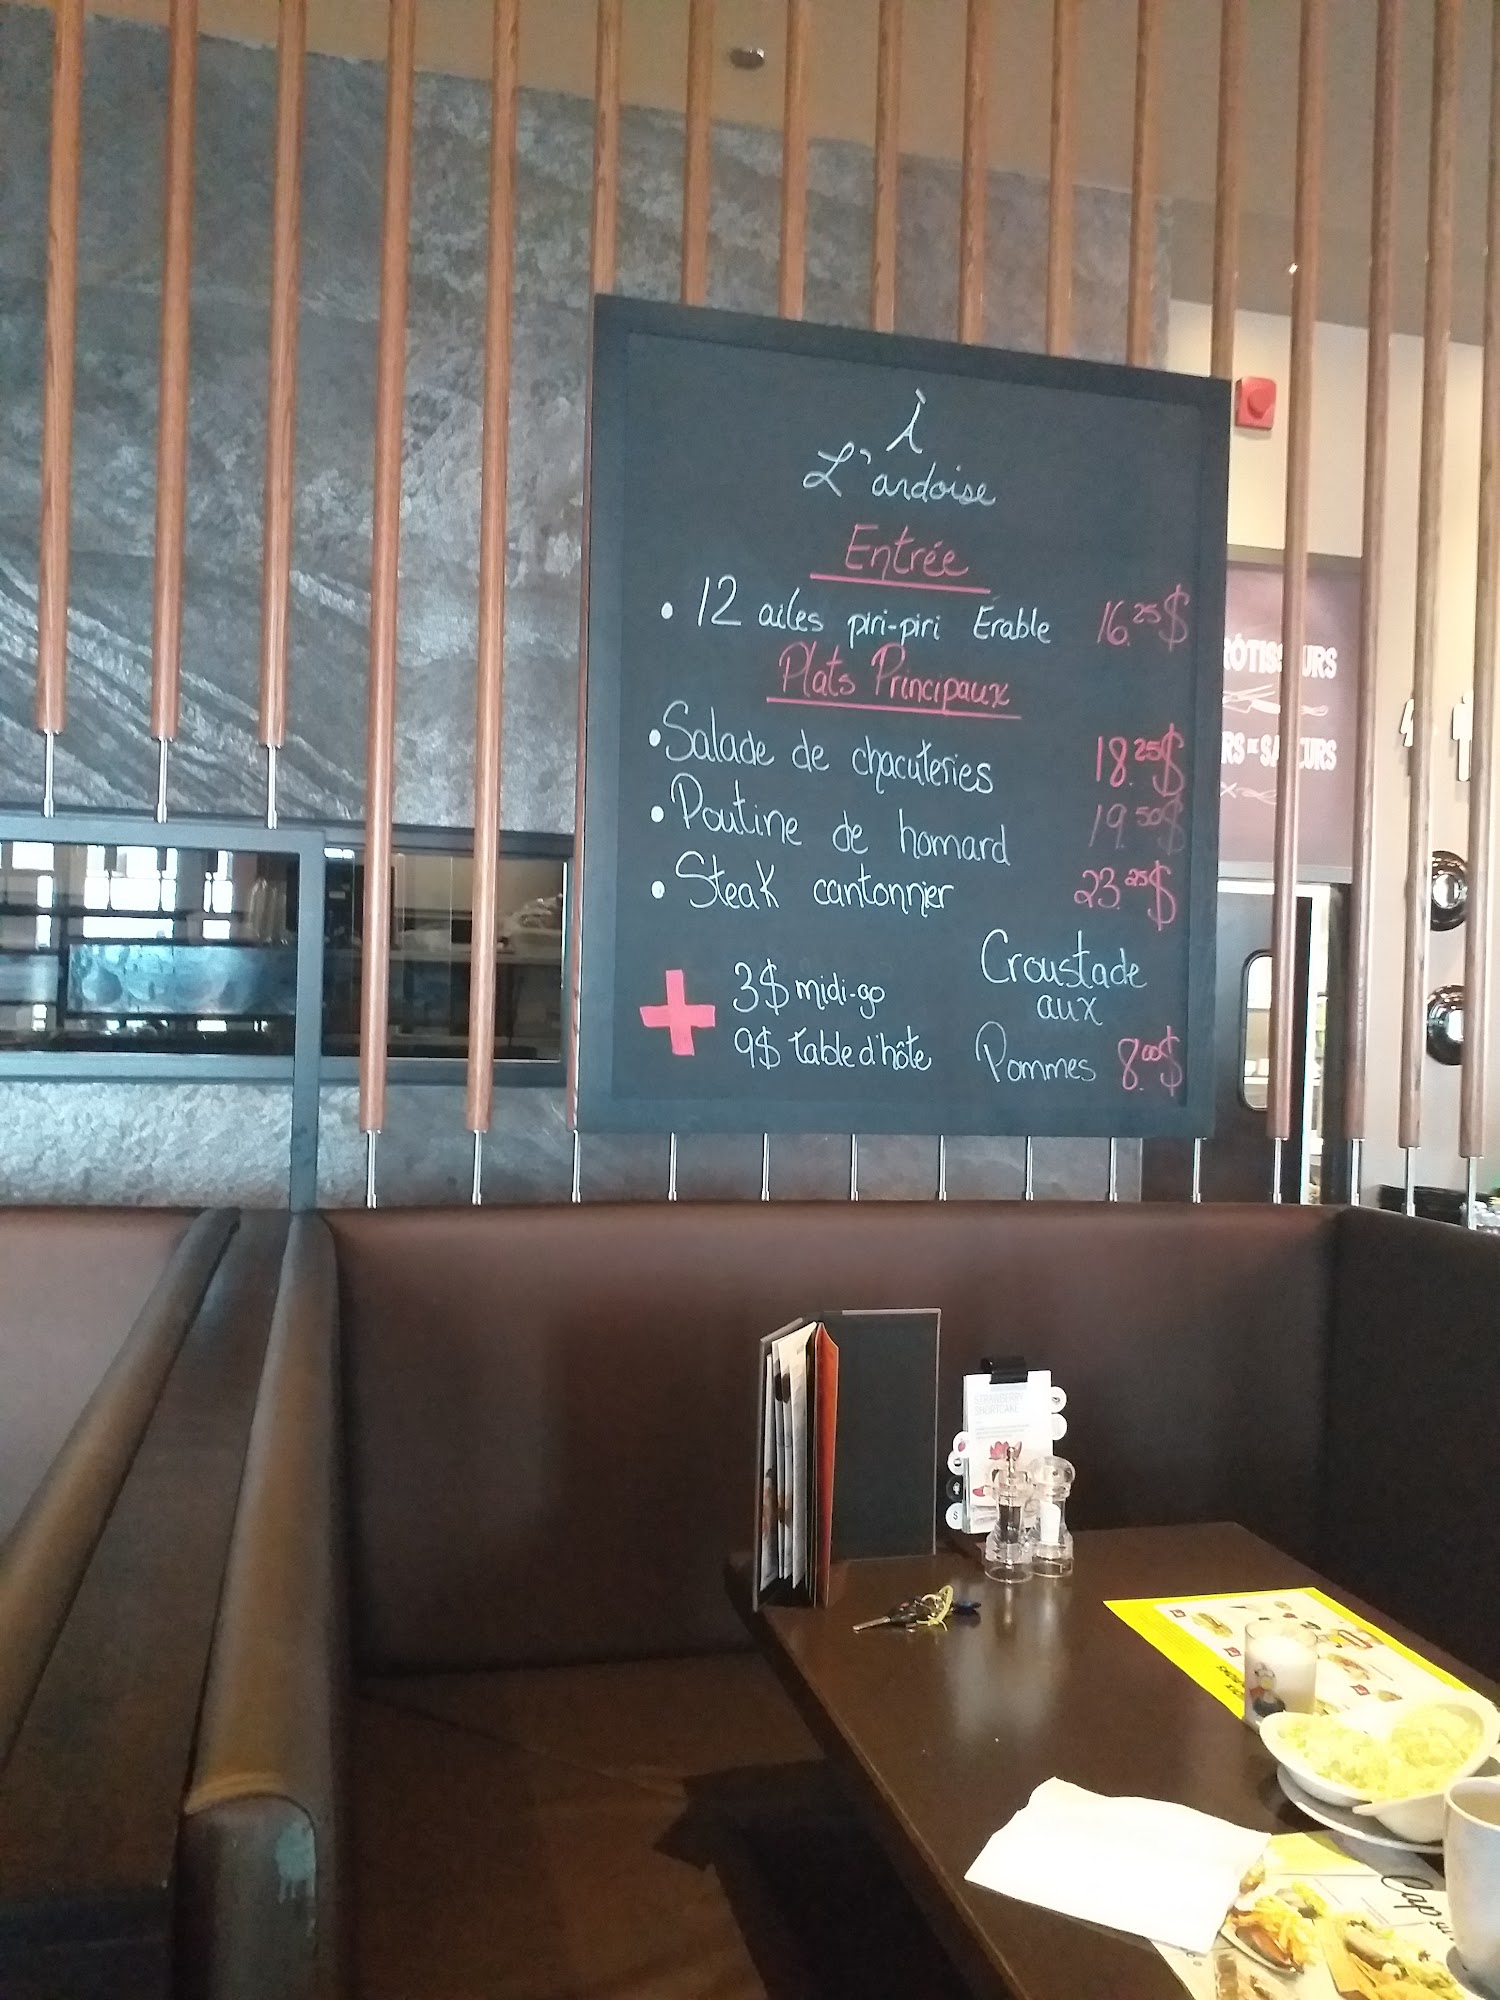 À
L'ardoise
Entrée
• 12 ailes piri-piri Érable 16.25$
Plats Principaux
• Salade de chacuteries 18.25$
• Poutine de homard 19.50$
• Steak cantonnier 23.25$
+ 3$ midi-go
9$ table d'hôte
Croustade
aux
Pommes 8.00$
STRAWBERRY
SHORTCAKE
Cap